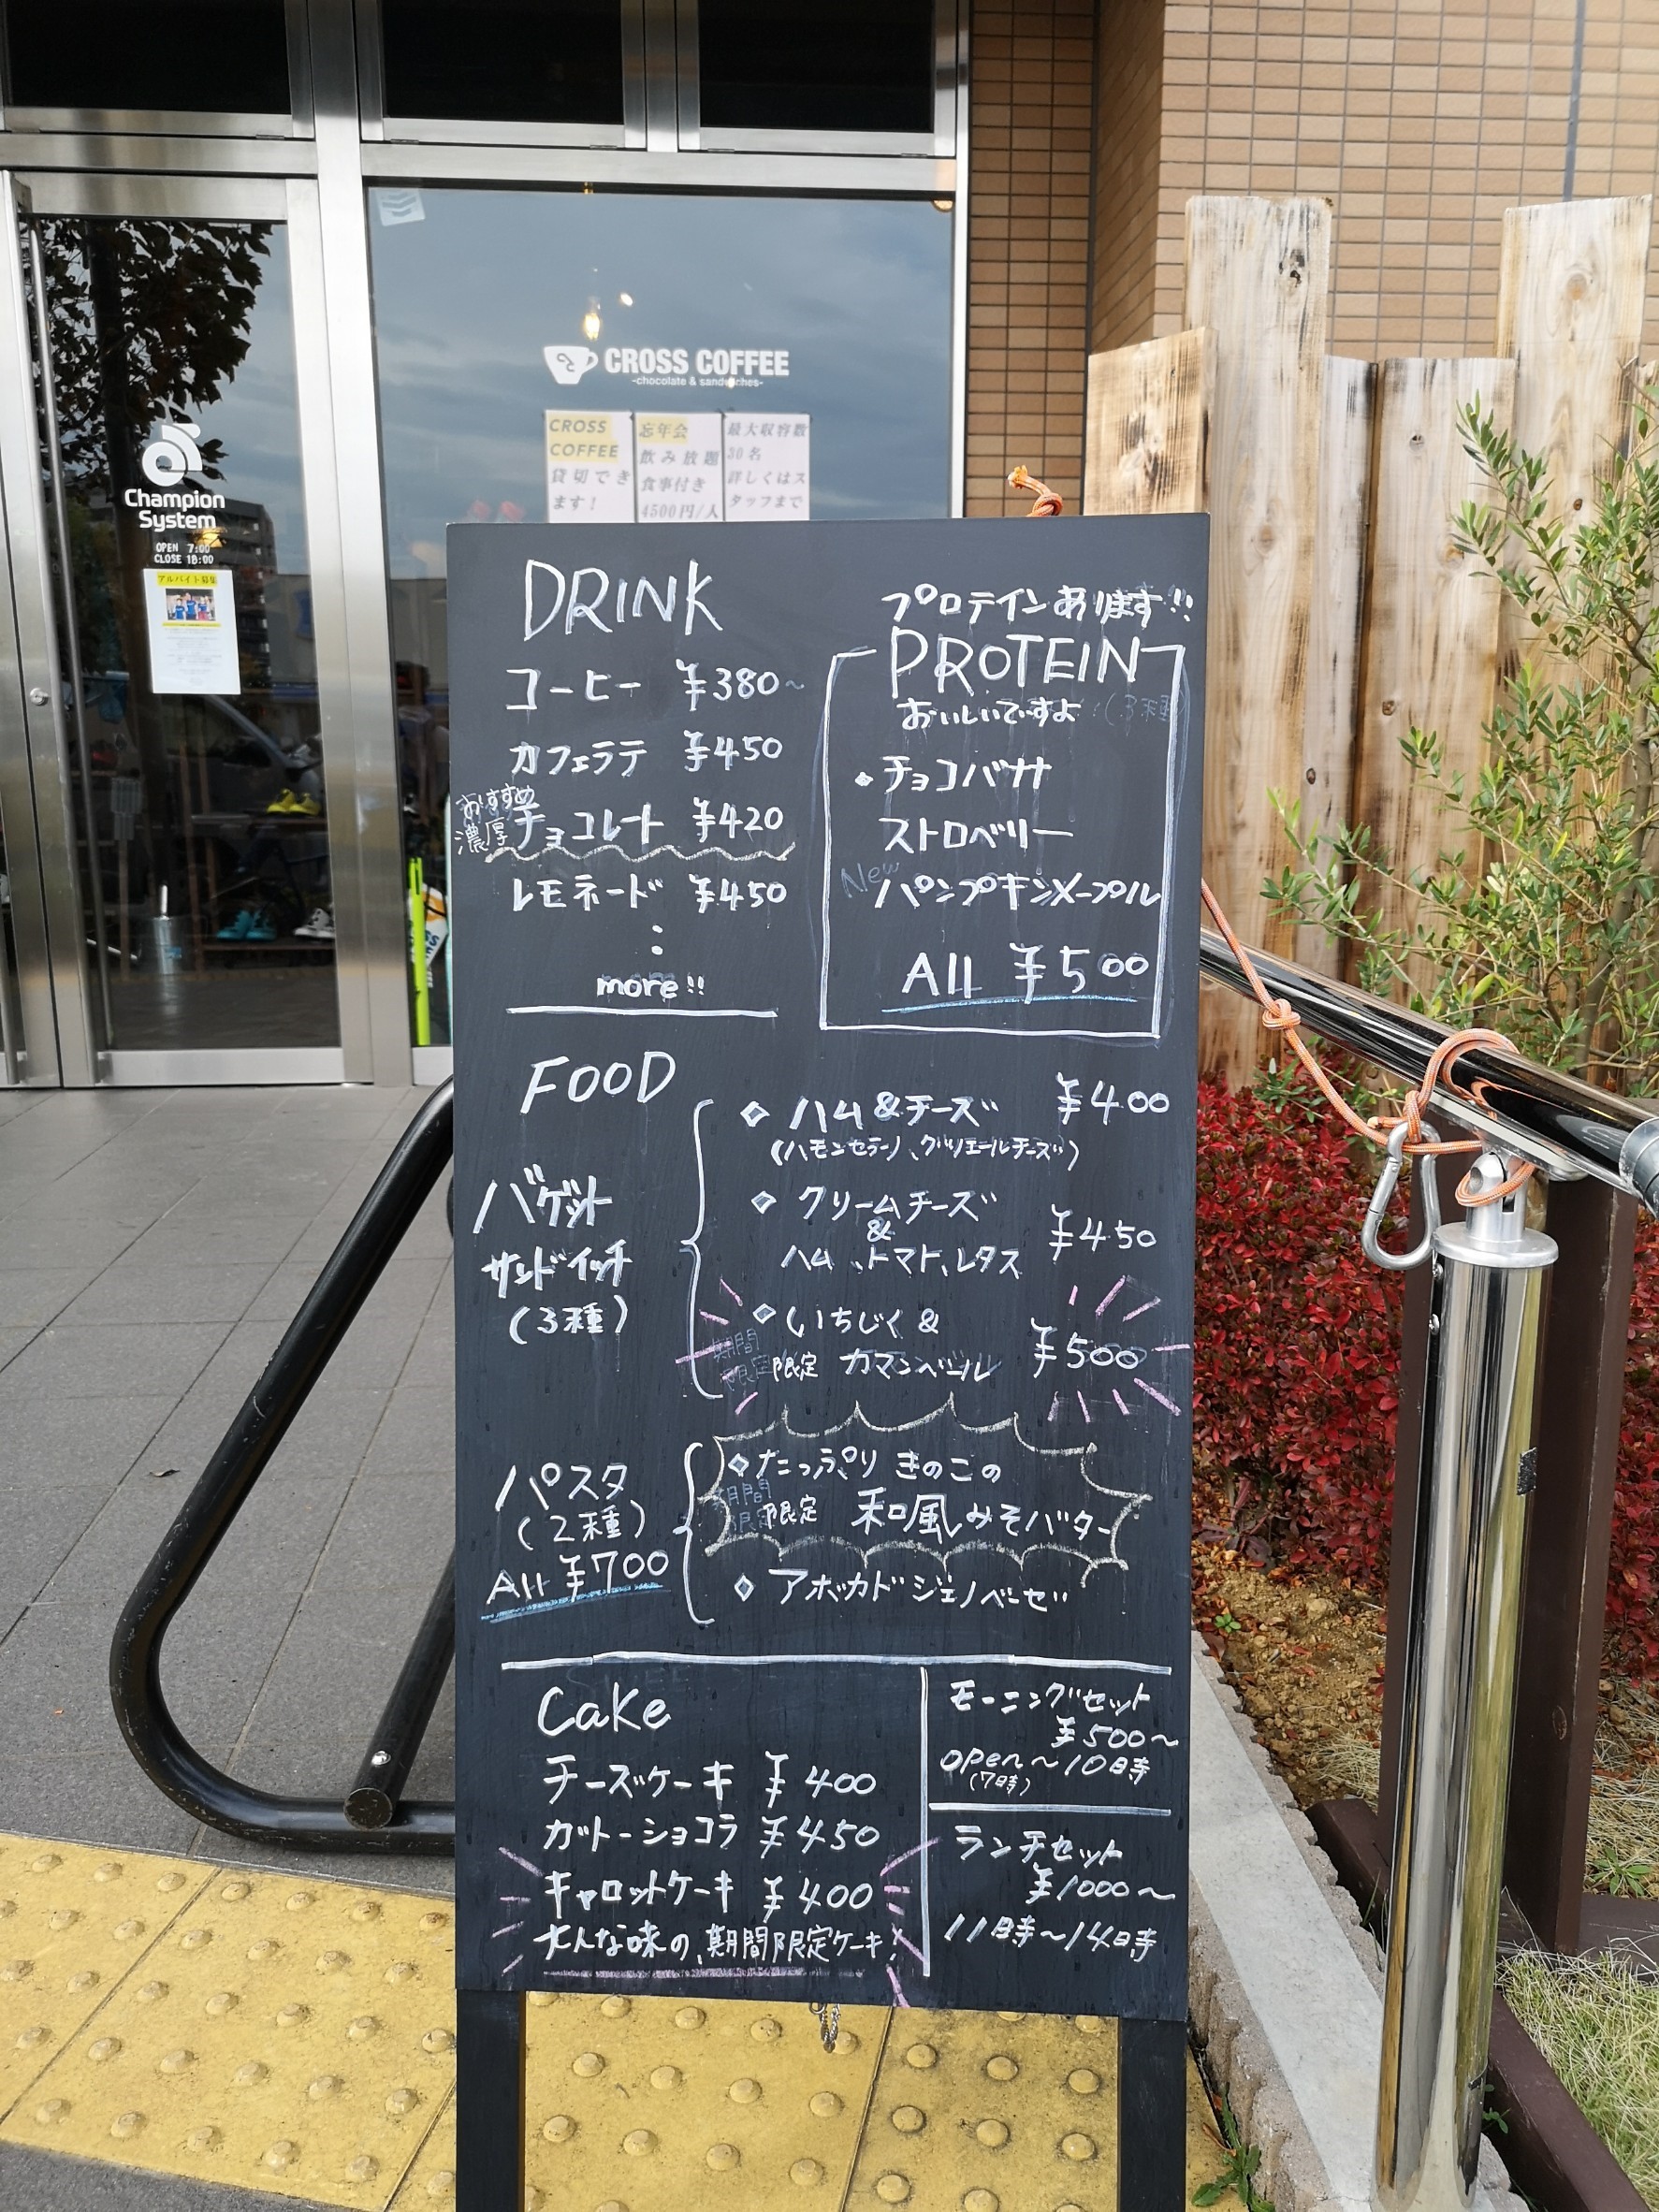 CROSS COFFEE
-chocolate & sandwiches-
CROSS
COFFEE
貸切でき
ます!
忘年会
飲み放題
食事付き
4500円/人
最大収容数
30名
詳しくはス
タッフまで
Champion
System
OPEN 7:00
CLOSE 18:00
アルバイト募集
DRINK
コーヒー ¥380~
カフェラテ ¥450
おすすめ
濃厚 チョコレート ¥420
レモネード ¥450
more!!
プロテインあります!!
PROTEIN
おいしいですよ (3種)
・チョコバナナ
ストロベリー
New パンプキンメープル
All ¥500
FOOD
バゲット
サンドイッチ
(3種)
◇ ハム&チーズ ¥400
(ハモンセラーノ、グリエールチーズ)
◇ クリームチーズ
&
ハム、トマト、レタス ¥450
◇ いちじく&
期間
限定 限定 カマンベール ¥500
パスタ
(2種)
All ¥700
◇ たっぷり きのこの
期間
限定 限定 和風みそバター
◇ アボカド ジェノベーゼ
Cake
チーズケーキ ¥400
ガトーショコラ ¥450
キャロットケーキ ¥400
大人な味の、期間限定ケーキ!
モーニングセット
¥500~
open~10時
(7時)
ランチセット
¥1000~
11時~14時